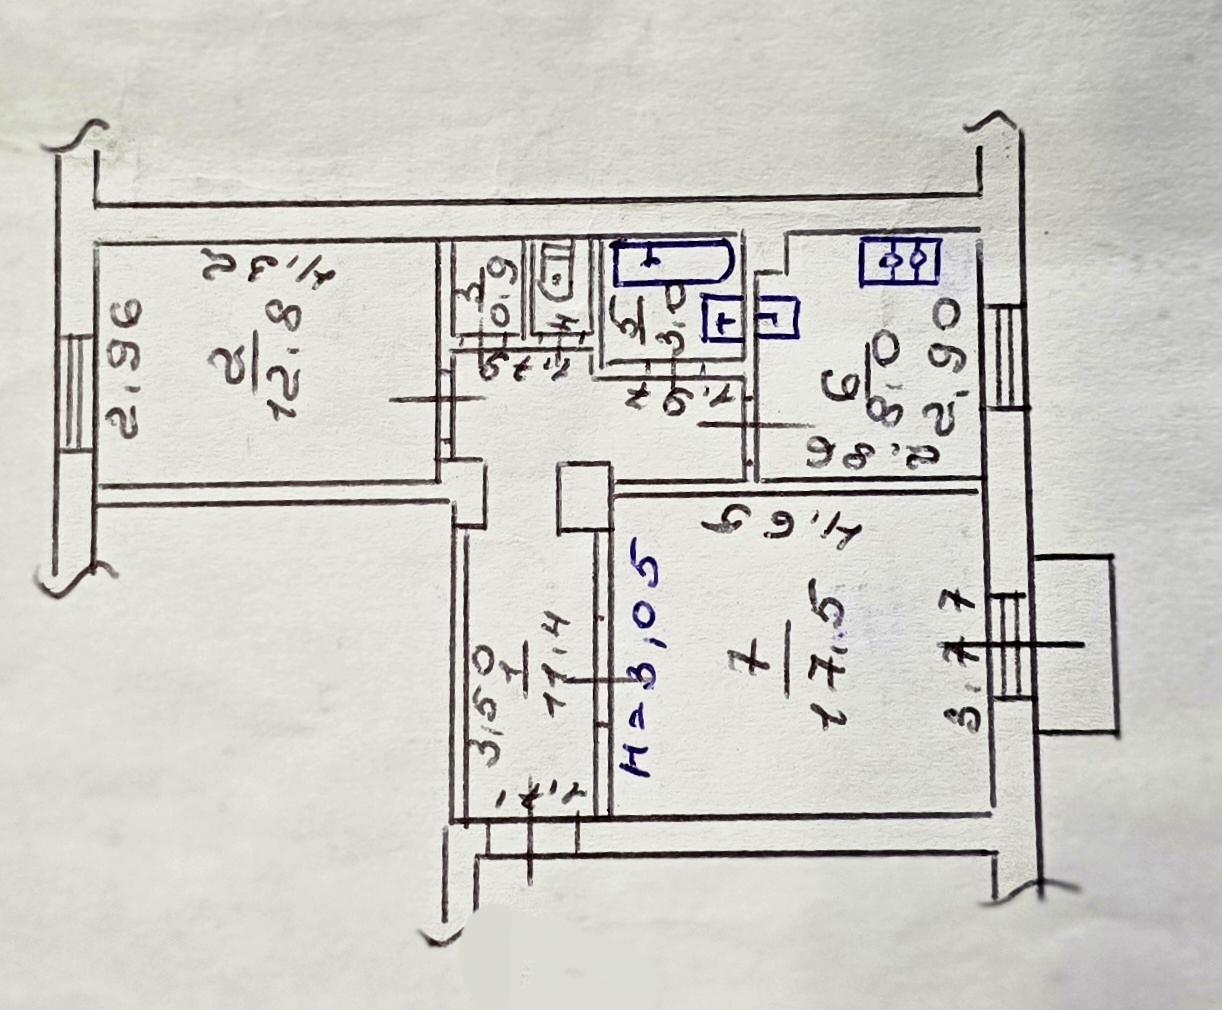 4,32
2,96
2
12,8
3
0,9
4
5
3,0
6
8,0
2,90
2,86
1,79
1,97
4,65
H=3,05
7
17,5
3,77
3,50
1
11,4
1,71